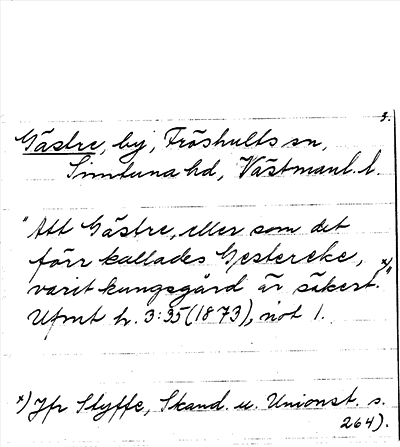 3.
Gästre, by, Fröshults sn,
Simtuna hd, Västmanl. l.
"Att Gästre, eller som det
förr kallades Gestereke,
varit kungsgård är säkert." x)
Ufmt h. 3:35 (1873), not 1.
x) Jfr Styffe, Skand. u. Unionst. s.
264).